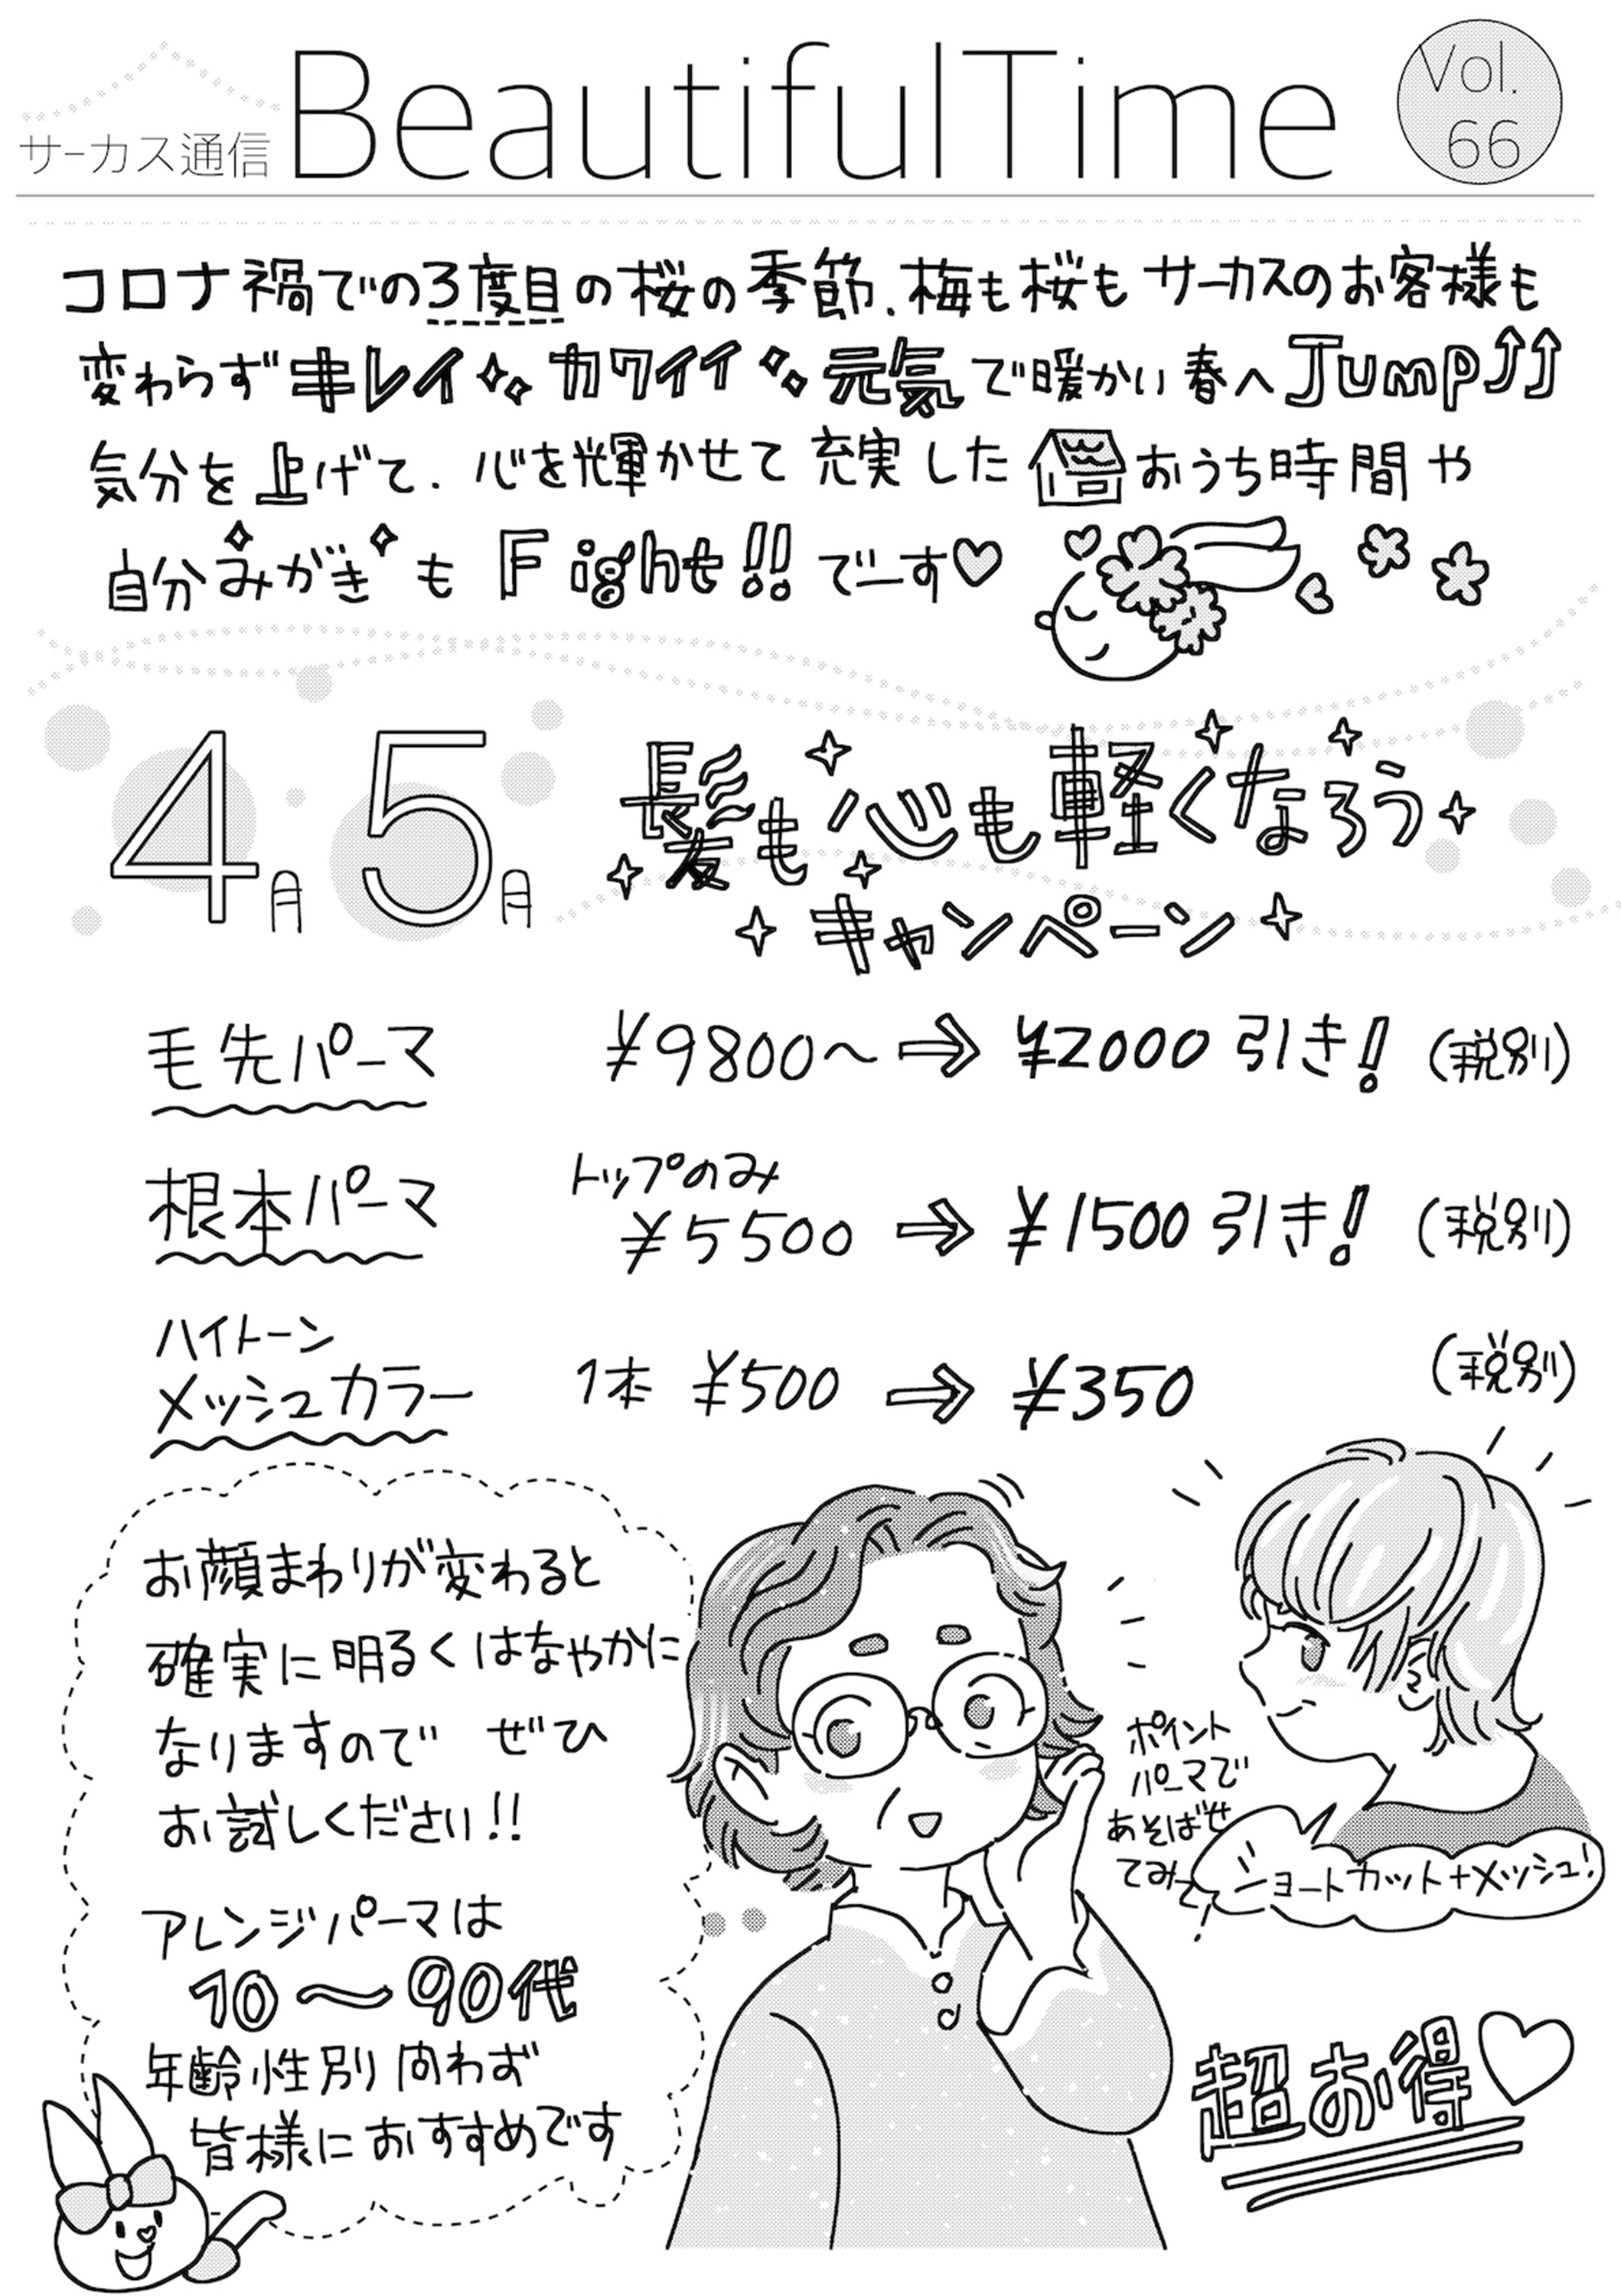 サーカス通信 BeautifulTime Vol. 66
コロナ禍での3度目の桜の季節、梅も桜もサーカスのお客様も
変わらずキレイカワイイ元気で暖かい春へJump⤴⤴
気分を上げて、心を輝かせて充実したおうち時間や
自分みがきもFight!!でーす♡
4月5月 髪も心も軽くなろう
キャンペーン
毛先パーマ ¥9800〜⇒¥2000引き!(税別)
トップのみ
根本パーマ ¥5500⇒¥1500引き!(税別)
ハイトーン
メッシュカラー 1本 ¥500⇒¥350 (税別)
お顔まわりが変わると
確実に明るくはなやかに
なりますので ぜひ
お試しください!!
アレンジパーマは
10〜90代
年齢性別問わず
皆様におすすめです
ポイント
パーマで
あそばせ
てみて!
ショートカット+メッシュ!
超お得♡